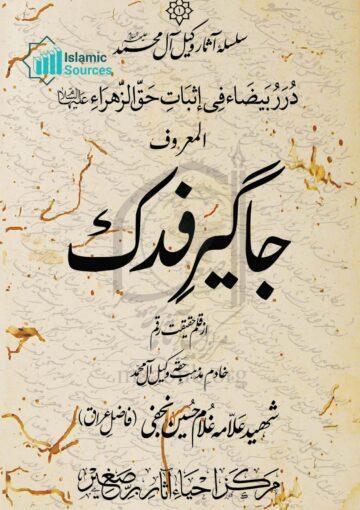 ۱
Islamic
Sources
سلسلۂ آثار وکیل آل محمد
دُرَرُ بَیضَاء فِی إثبَاتِ حَقِّ الزَّهرَاءِ علیہا السلام
المعروف
جاگیرِ فدک
از قلم حقیقت رقم
خادم مذہب حقہ وکیل آل محمد
شہید علامہ غلام حسین نجفی (فاضل عراق)
مرکز احیاء آثار برصغیر